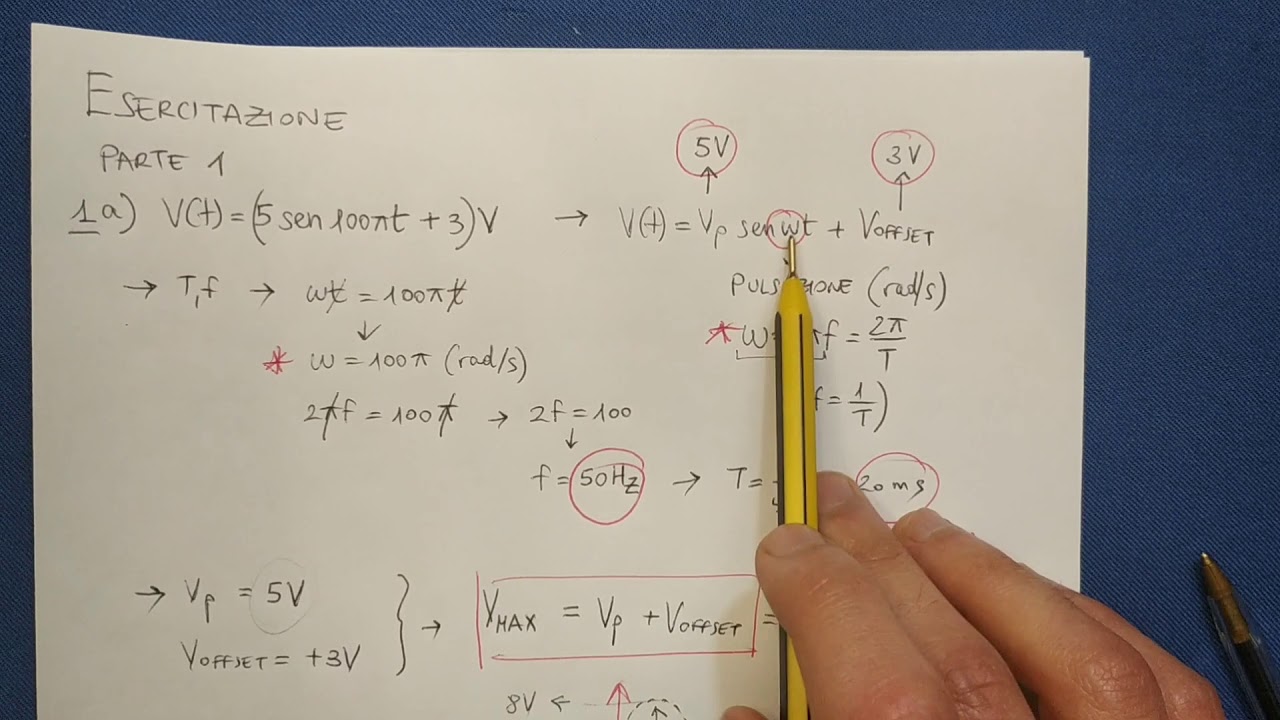 ESERCITAZIONE
PARTE 1
5V
3V
1a) V(t) = (5 sen 100πt + 3)V → V(t) = Vp sen ωt + VOFFSET
→ T, f → ωt = 100πt
PULSAZIONE (rad/s)
* ω = 100π (rad/s)
* ω= πf = 2π/T
2πf = 100π → 2f = 100
f = 1/T)
f = 50Hz → T= 20 ms
→ Vp = 5V
VOFFSET = +3V
→ VMAX = Vp + VOFFSET =
8V ←